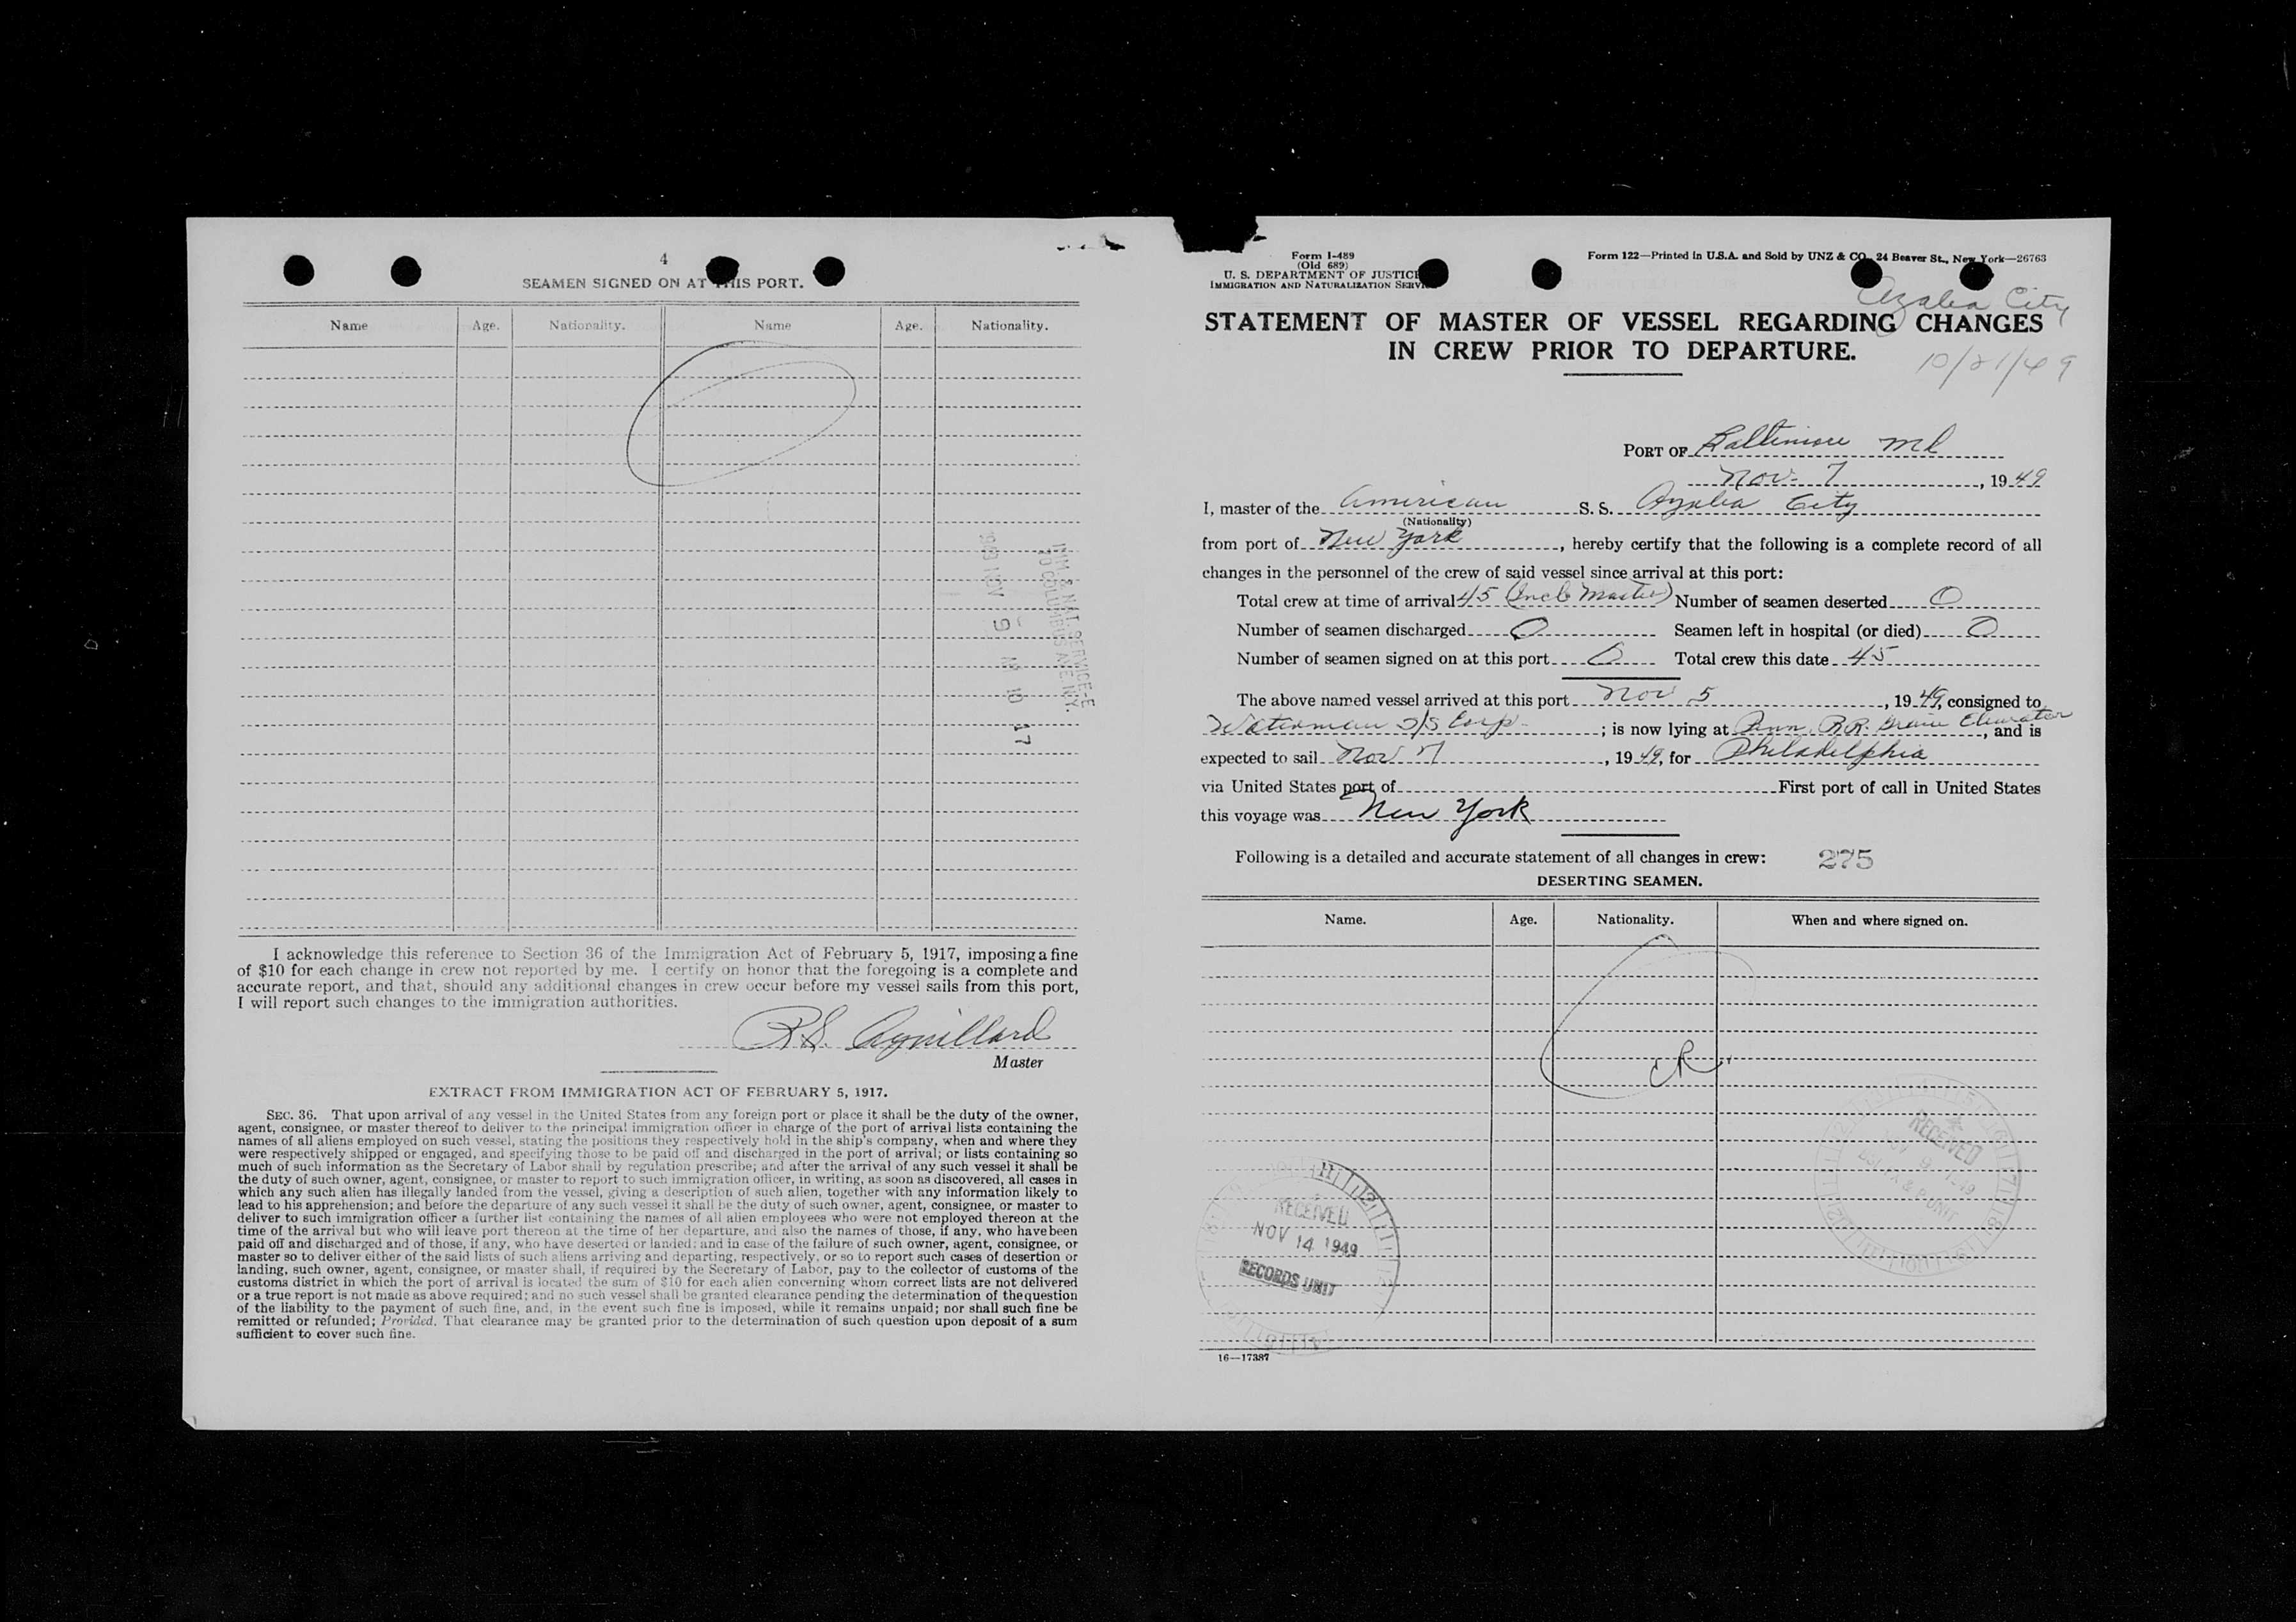 4
SEAMEN SIGNED ON AT THIS PORT.
Name Age. Nationality. Name Age. Nationality.
IMM. & NAT. SERVICE-E
70 COLUMBUS AVE. N.Y.
NOV 9 10 17
I acknowledge this reference to Section 36 of the Immigration Act of February 5, 1917, imposing a fine
of $10 for each change in crew not reported by me. I certify on honor that the foregoing is a complete and
accurate report, and that, should any additional changes in crew occur before my vessel sails from this port,
I will report such changes to the immigration authorities.
R.S. Aguillard
Master
EXTRACT FROM IMMIGRATION ACT OF FEBRUARY 5, 1917.
SEC. 36. That upon arrival of any vessel in the United States from any foreign port or place it shall be the duty of the owner,
agent, consignee, or master thereof to deliver to the principal immigration officer in charge of the port of arrival lists containing the
names of all aliens employed on such vessel, stating the positions they respectively hold in the ship's company, when and where they
were respectively shipped or engaged, and specifying those to be paid off and discharged in the port of arrival; or lists containing so
much of such information as the Secretary of Labor shall by regulation prescribe; and after the arrival of any such vessel it shall be
the duty of such owner, agent, consignee, or master to report to such immigration officer, in writing, as soon as discovered, all cases in
which any such alien has illegally landed from the vessel, giving a description of such alien, together with any information likely to
lead to his apprehension; and before the departure of any such vessel it shall be the duty of such owner, agent, consignee, or master to
deliver to such immigration officer a further list containing the names of all alien employees who were not employed thereon at the
time of the arrival but who will leave port thereon at the time of her departure, and also the names of those, if any, who have been
paid off and discharged and of those, if any, who have deserted or landed; and in case of the failure of such owner, agent, consignee, or
master so to deliver either of the said lists of such aliens arriving and departing, respectively, or so to report such cases of desertion or
landing, such owner, agent, consignee, or master shall, if required by the Secretary of Labor, pay to the collector of customs of the
customs district in which the port of arrival is located the sum of $10 for each alien concerning whom correct lists are not delivered
or a true report is not made as above required; and no such vessel shall be granted clearance pending the determination of the question
of the liability to the payment of such fine, and, in the event such fine is imposed, while it remains unpaid; nor shall such fine be
remitted or refunded; Provided, That clearance may be granted prior to the determination of such question upon deposit of a sum
sufficient to cover such fine.
Form I-489
(Old 689)
U. S. DEPARTMENT OF JUSTICE
IMMIGRATION AND NATURALIZATION SERVICE
Form 122—Printed in U.S.A. and Sold by UNZ & CO., 24 Beaver St., New York—26763
Azalea City
STATEMENT OF MASTER OF VESSEL REGARDING CHANGES
IN CREW PRIOR TO DEPARTURE.
10/21/49
PORT OF Baltimore Md
Nov. 7, 1949
I, master of the American S. S. Azalea City
(Nationality)
from port of New York, hereby certify that the following is a complete record of all
changes in the personnel of the crew of said vessel since arrival at this port:
Total crew at time of arrival 45 (Incl. Master) Number of seamen deserted 0
Number of seamen discharged 0 Seamen left in hospital (or died) 0
Number of seamen signed on at this port 0 Total crew this date 45
The above named vessel arrived at this port Nov 5, 1949, consigned to
Waterman S/S Corp.; is now lying at Penn. R.R. Grain Elevator, and is
expected to sail Nov 7, 1949, for Philadelphia
via United States port of First port of call in United States
this voyage was New York
Following is a detailed and accurate statement of all changes in crew: 275
DESERTING SEAMEN.
Name. Age. Nationality. When and where signed on.
RECEIVED
NOV 14 1949
RECORDS UNIT
RECEIVED
16—17387